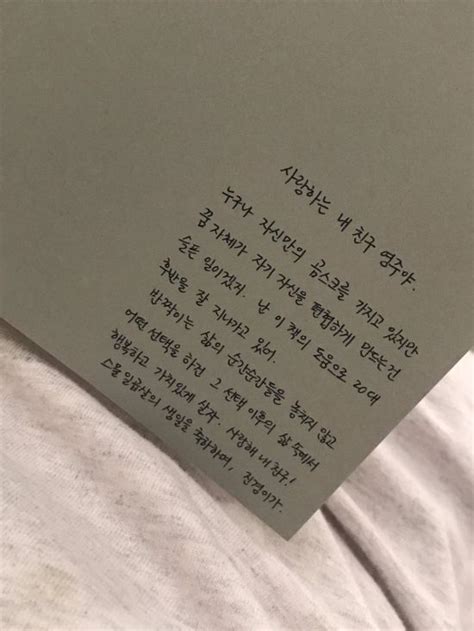 사랑하는 내 친구 영주야.
누구나 자신만의 곰스크를 가지고 있지만
꿈 자체가 자기 자신을 편협하게 만드는건
슬픈 일이겠지. 난 이 책의 도움으로 20대
후반을 잘 지나가고 있어.
반짝이는 삶의 순간순간들을 놓치지 않고
어떤 선택을 하건 그 선택 이후의 삶 속에서
행복하고 가치있게 살자. 사랑해 내 친구!
스물일곱살의 생일을 축하하며, 진경이가.